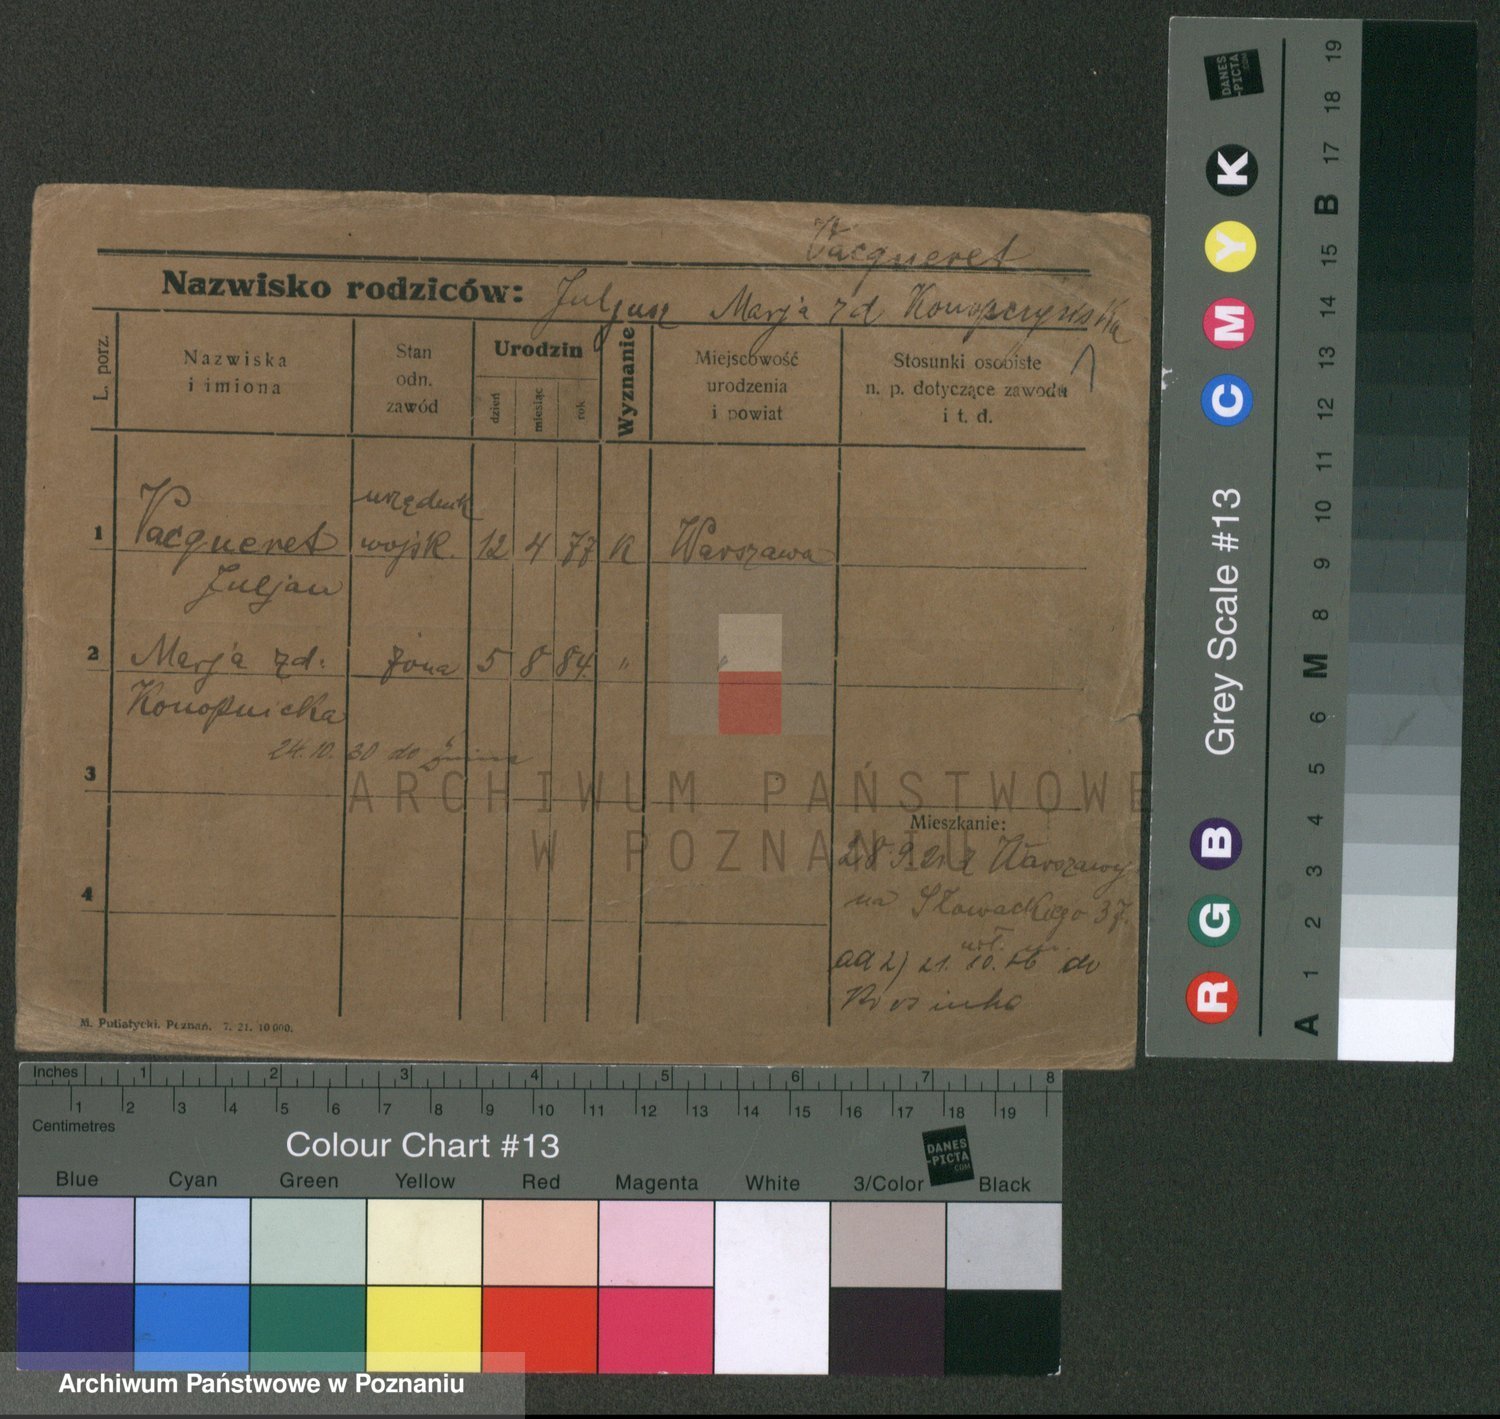 Vacqueret
Nazwisko rodziców: Juljusz Marja zd Konopczyńska
L. porz.
Nazwiska
i imiona
Stan
odn.
zawód
Urodzin
dzień
miesiąc
rok
Wyznanie
Miejscowość
urodzenia
i powiat
Stosunki osobiste
n. p. dotyczące zawodu
i t. d.
urzędnik
1 Vacqueret wojsk. 12 4 77 k Warszawa
Juljan
2 Marja zd. żona 5 8 84 " "
Konopnicka
24.10.30 do
3
4
ARCHIWUM PAŃSTWOWE
W POZNANIU
Mieszkanie:
28 9 21 z Warszawy
na Słowackiego 37.
ad 2) 21. 10. do
M. Putiatycki, Poznań. 7. 21. 10 000.
Inches 1 2 3 4 5 6 7 8
1 2 3 4 5 6 7 8 9 10 11 12 13 14 15 16 17 18 19
Centimetres
Colour Chart #13
DANES
-PICTA
.COM
Blue Cyan Green Yellow Red Magenta White 3/Color Black
Grey Scale #13
R G B C M Y K
DANES
-PICTA
.COM
A 1 2 3 4 5 6 M 8 9 10 11 12 13 14 15 B 17 18 19
Archiwum Państwowe w Poznaniu